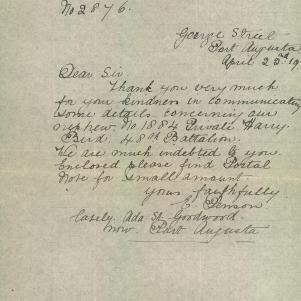 No 2876.
George Street
Port Augusta
April 23rd 19
Dear Sir
Thank you very much
for your kindness in communicating
some details concerning our
nephew No 1884 Private Harry
Bird. 48th Battalion.
We are much indebted to you
Enclosed please find Postal
Note for small amount.
Yours faithfully
E.
Lately Ada St Goodwood.
now Port Augusta